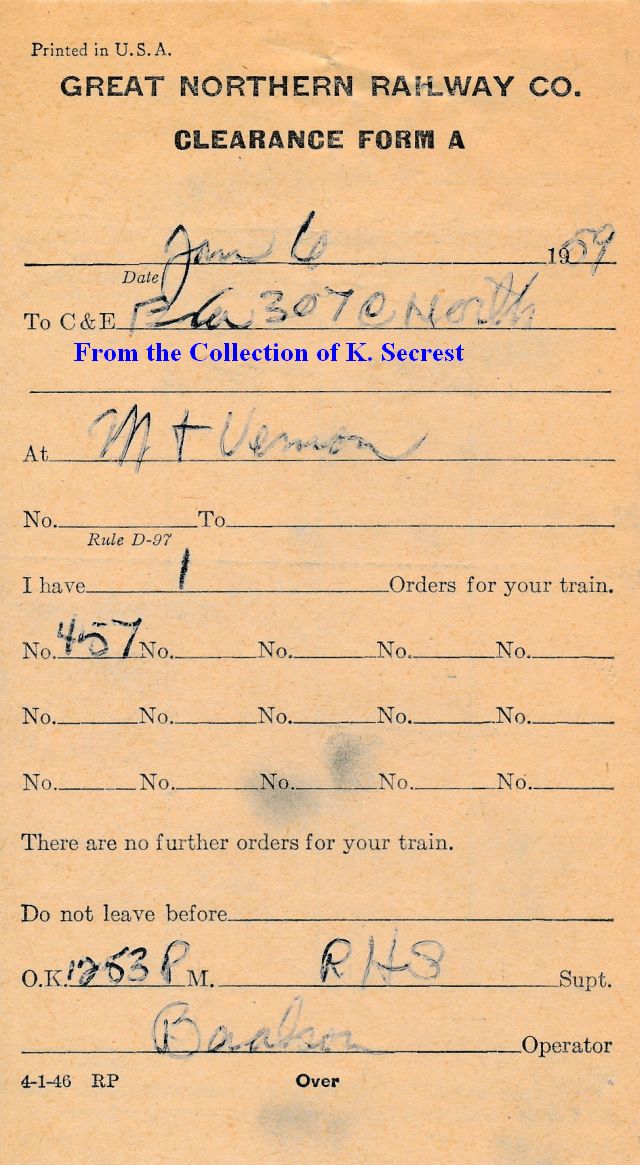 Printed in U.S.A.
GREAT NORTHERN RAILWAY CO.
CLEARANCE FORM A
Jan 6 1959
Date
To C & E Eng 307 C North
From the Collection of K. Secrest
At Mt Vernon
No. To
Rule D-97
I have 1 Orders for your train.
No. 457 No. No. No. No.
No. No. No. No. No.
No. No. No. No. No.
There are no further orders for your train.
Do not leave before
O.K. 1253 P M. RHS Supt.
Operator
4-1-46 RP Over